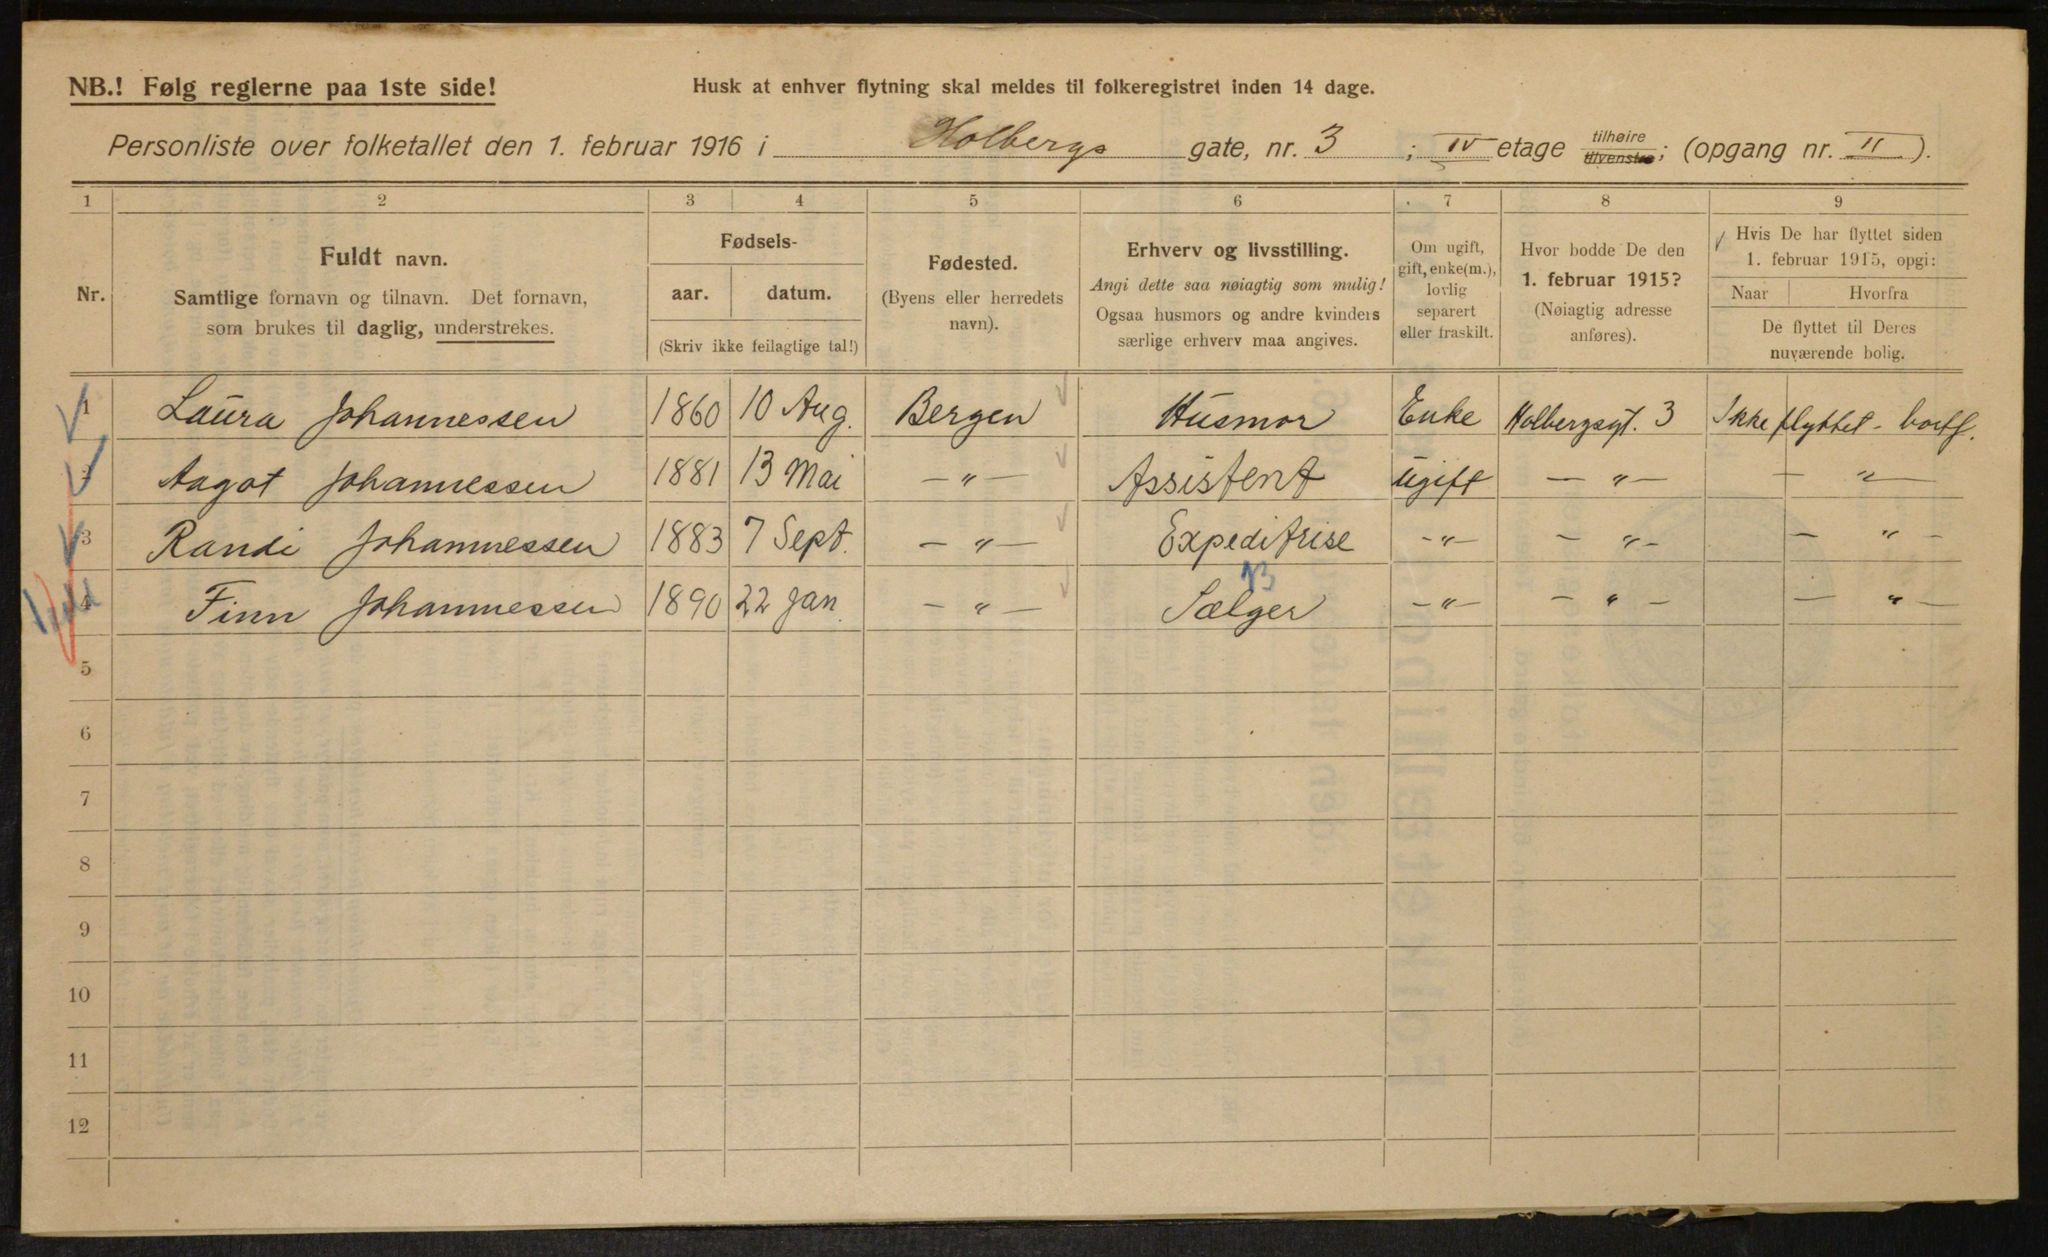 NB.! Følg reglerne paa 1ste side!
Husk at enhver flytning skal meldes til folkeregistret inden 14 dage.
Personliste over folketallet den 1. februar 1916 i Holbergs gate, nr. 3; IV etage tilhøire tilvenstre; (opgang nr. II).
1 2 3 4 5 6 7 8 9
Nr.
Fuldt navn.
Samtlige fornavn og tilnavn. Det fornavn,
som brukes til daglig, understrekes.
Fødsels-
aar. datum.
(Skriv ikke feilagtige tal!)
Fødested.
(Byens eller herredets
navn).
Erhverv og livsstilling.
Angi dette saa nøiagtig som mulig!
Ogsaa husmors og andre kvinders
særlige erhverv maa angives.
Om ugift,
gift, enke(m.),
lovlig
separert
eller fraskilt.
Hvor bodde De den
1. februar 1915?
(Nøiagtig adresse
anføres).
Hvis De har flyttet siden
1. februar 1915, opgi:
Naar Hvorfra
De flyttet til Deres
nuværende bolig.
1 Laura Johannessen 1860 10 Aug. Bergen Husmor Enke Holbergsgt. 3 Ikke flyttet - bortf.
2 Aagot Johannessen 1881 13 Mai — " — Assistent ugift — " — — " —
3 Randi Johannessen 1883 7 Sept. — " — Expeditrise — " — — " — — " —
4 Finn Johannessen 1890 22 Jan — " — Sælger — " — — " — — " —
5
6
7
8
9
10
11
12